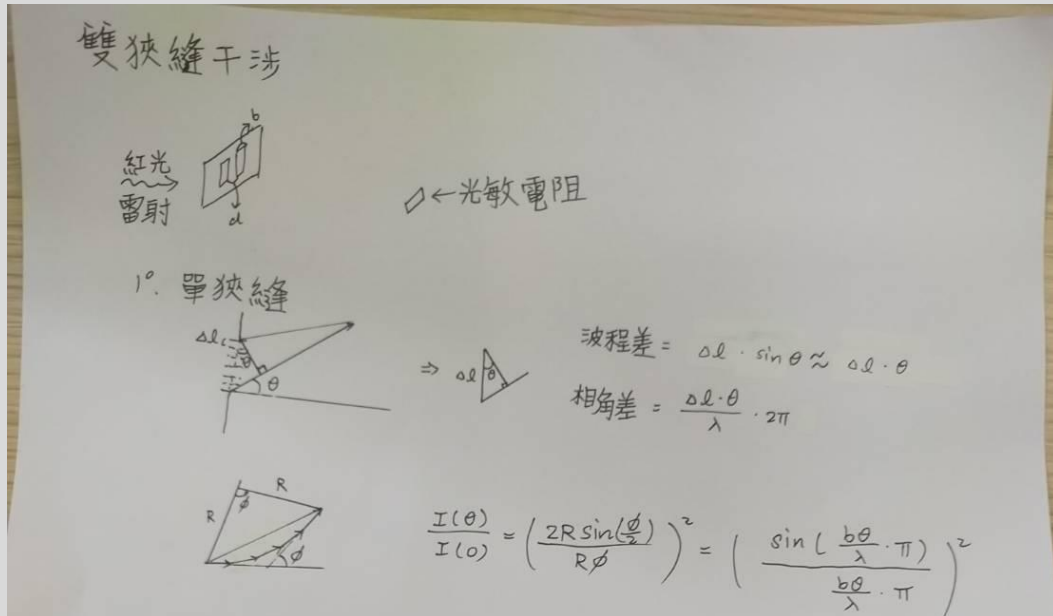 雙狹縫干涉
b
紅光
雷射
d
←光敏電阻
1°. 單狹縫
Δl
θ
θ
⇒ Δl θ
波程差 = Δl · sinθ ≈ Δl · θ
相角差 = Δl·θ/λ · 2π
R
R
φ
φ
I(θ)/I(0) = (2R sin(φ/2)/Rφ)² = (sin(bθ/λ · π)/(bθ/λ · π))²